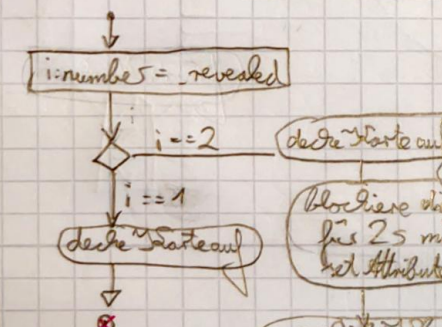 i:number = _revealed
i
i == 2
decke Karte auf
i == 1
blockiere
für 2s
set Attribut
decke Karte auf